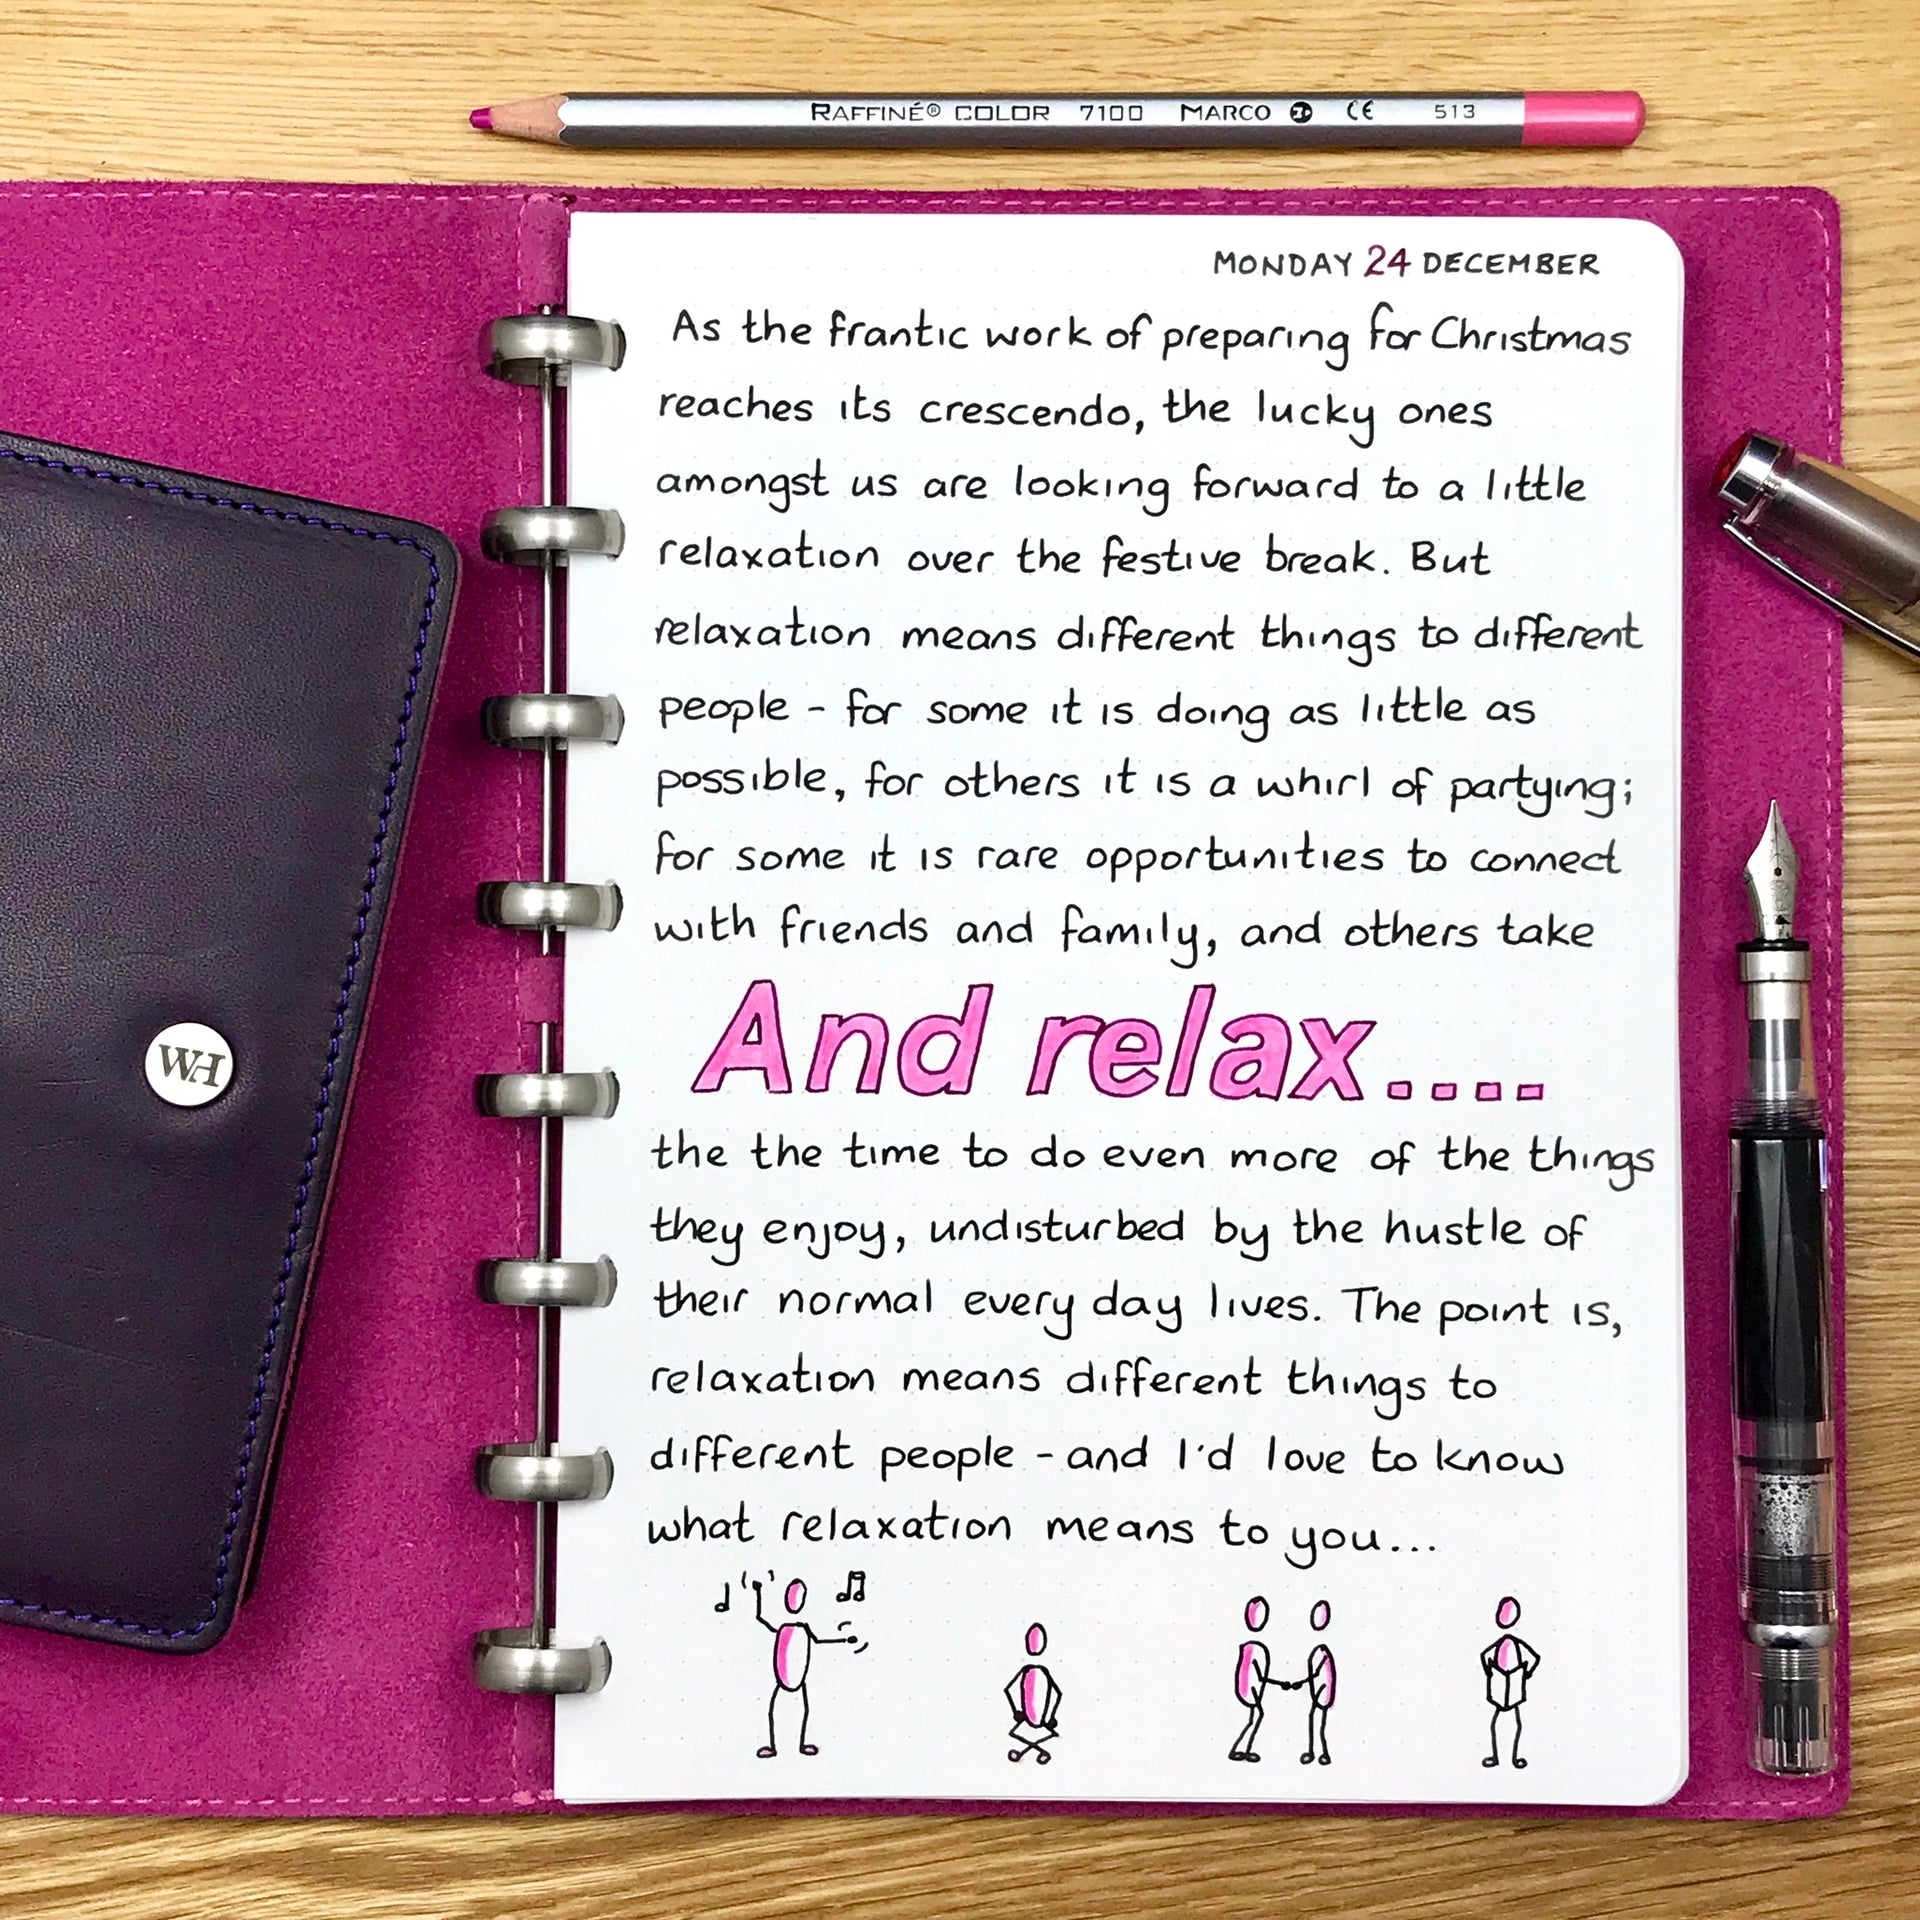 RAFFINÉ® COLOR 7100 MARCO CE 513
MONDAY 24 DECEMBER
As the frantic work of preparing for Christmas
reaches its crescendo, the lucky ones
amongst us are looking forward to a little
relaxation over the festive break. But
relaxation means different things to different
people - for some it is doing as little as
possible, for others it is a whirl of partying;
for some it is rare opportunities to connect
with friends and family, and others take
And relax....
the the time to do even more of the things
they enjoy, undisturbed by the hustle of
their normal every day lives. The point is,
relaxation means different things to
different people - and I'd love to know
what relaxation means to you...
WH